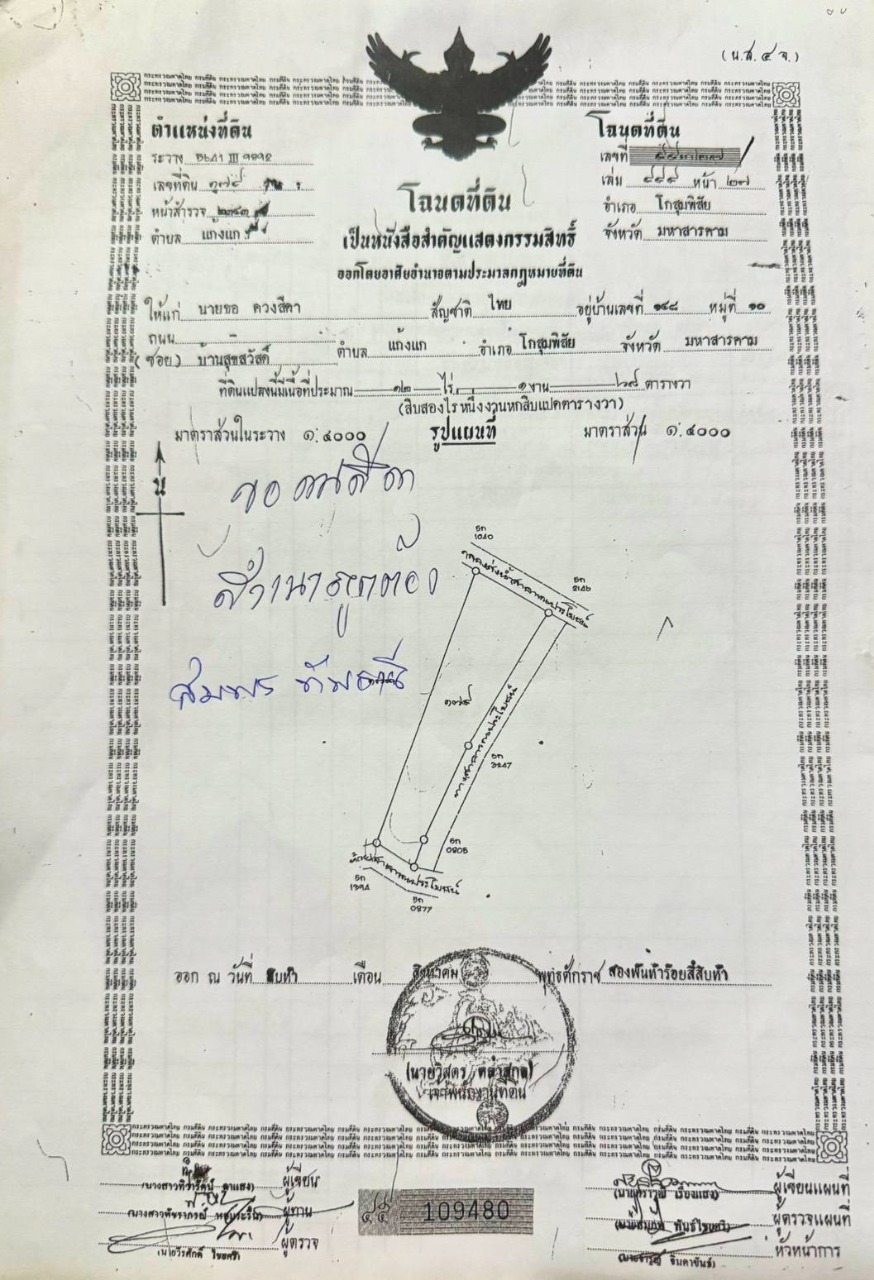 (น.ส. ๔ จ.)
ตำแหน่งที่ดิน
ระวาง 5641 III 9892
เลขที่ดิน ๑๗๙
หน้าสำรวจ
ตำบล แกงแก
โฉนดที่ดิน
เลขที่
เล่ม ๔๙๙ หน้า ๒๗
อำเภอ โกสุมพิสัย
จังหวัด มหาสารคาม
โฉนดที่ดิน
เป็นหนังสือสำคัญแสดงกรรมสิทธิ์
ออกโดยอาศัยอำนาจตามประมวลกฎหมายที่ดิน
ให้แก่ นายขอ ดวงสีดา สัญชาติ ไทย อยู่บ้านเลขที่ ๑๔๘ หมู่ที่ ๑๐
ถนน -
(ซอย) บ้านสุขสวัสดิ์ ตำบล แก้งแก อำเภอ โกสุมพิสัย จังหวัด มหาสารคาม
ที่ดินแปลงนี้มีเนื้อที่ประมาณ ๑๒ ไร่ ๑ งาน ๖๘ ตารางวา
(สิบสองไร่หนึ่งงานหกสิบแปดตารางวา)
มาตราส่วนในระวาง ๑:๔๐๐๐ รูปแผนที่ มาตราส่วน ๑:๔๐๐๐
น
สำเนาถูกต้อง
5ก
1040
5ก
คลองส่งน้ำสาธารณประโยชน์
๑๗๙
ทางสาธารณประโยชน์
5ก
3247
5ก
0805
ห้วยสาธารณประโยชน์
5ก
1394
5ก
0877
ออก ณ วันที่ สิบห้า เดือน สิงหาคม พุทธศักราช สองพันห้าร้อยสี่สิบห้า
เจ้าพนักงานที่ดิน
ผู้เขียน
ผู้ทาน
ผู้ตรวจ
(นายวีรศักดิ์ ไชยศรี)
109480
ผู้เขียนแผนที่
ผู้ตรวจแผนที่
หัวหน้าการ